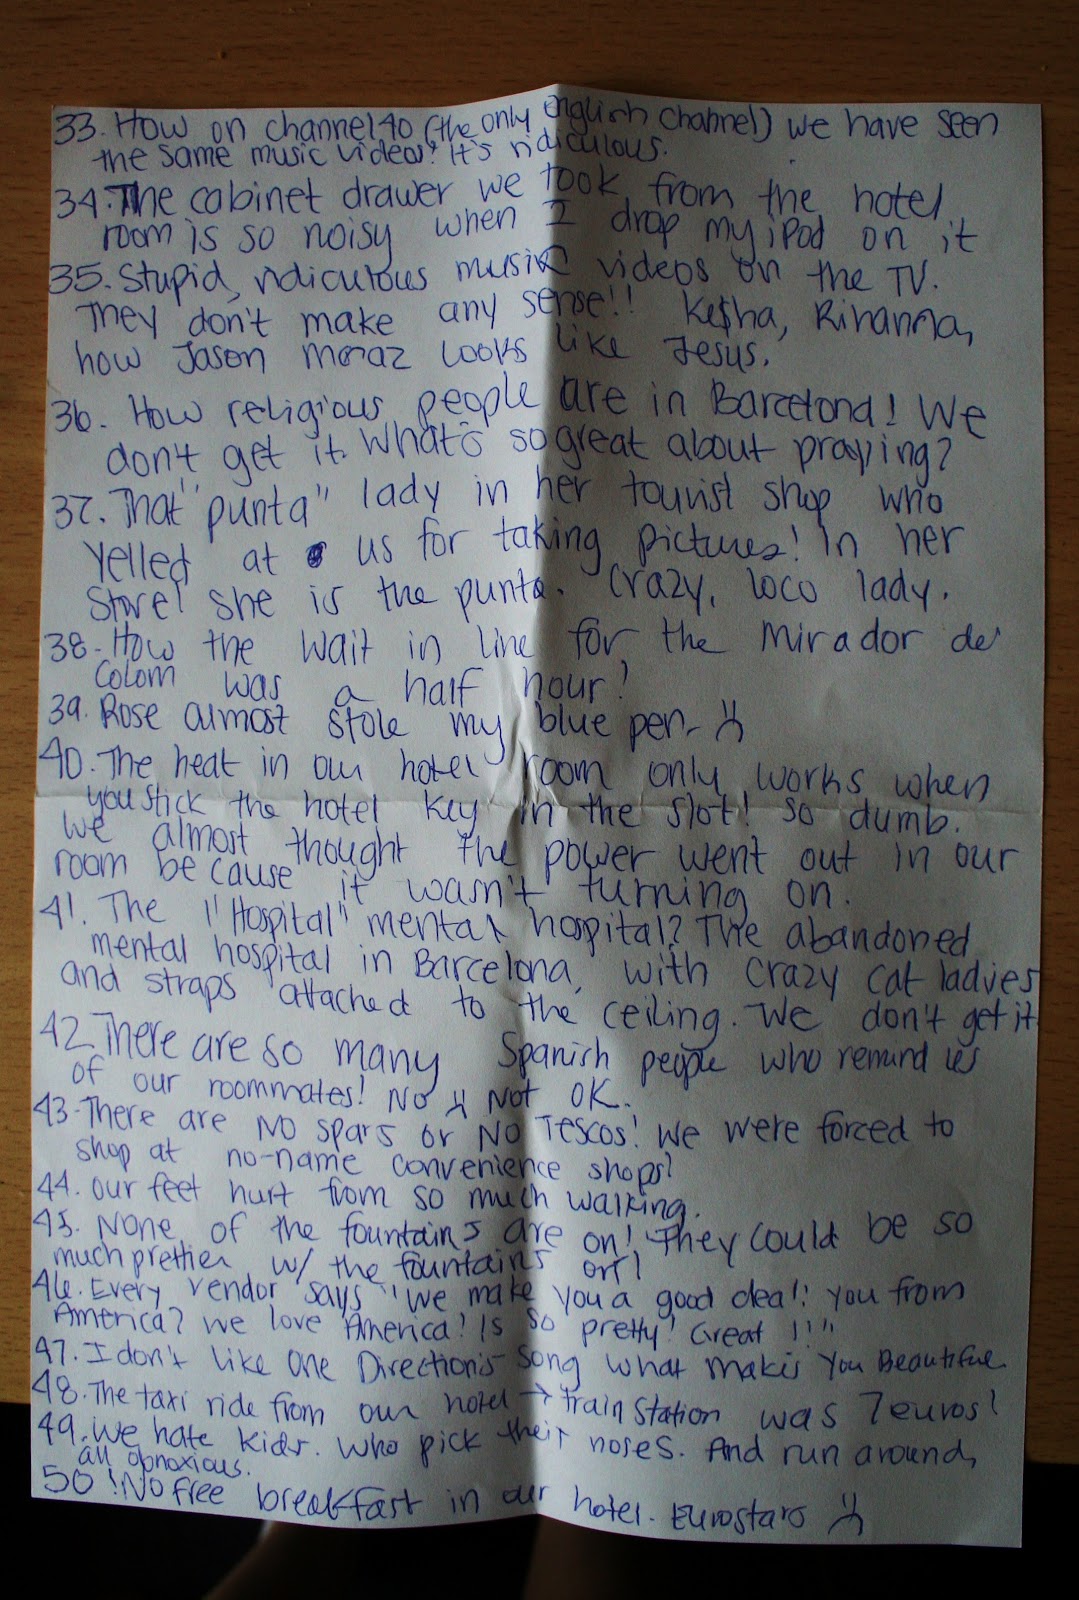 33. How on channel 40 (the only english channel) we have seen
the same music videos! It's ridiculous.
34. The cabinet drawer we took from the hotel
room is so noisy when I drop my ipod on it
35. Stupid, ridiculous music videos on the TV.
They don't make any sense!! Ke$ha, Rihanna,
how Jason Mraz looks like Jesus.
36. How religious people are in Barcelona! We
don't get it. What's so great about praying?
37. That "punta" lady in her tourist shop who
yelled at us for taking pictures! In her
store! she is the punta. Crazy, loco lady.
38. How the wait in line for the Mirador de
Colom was a half hour!
39. Rose almost stole my blue pen. :(
40. The heat in our hotel room only works when
you stick the hotel key in the slot! So dumb.
We almost thought the power went out in our
room because it wasn't turning on.
41. The "Hospital" mental hospital? The abandoned
mental hospital in Barcelona, with crazy cat ladies
and straps attached to the ceiling. We don't get it.
42. There are so many Spanish people who remind us
of our roommates! No :( Not OK.
43. There are NO spars or NO Tescos! We were forced to
shop at no-name convenience shops!
44. Our feet hurt from so much walking.
45. None of the fountains are on! They could be so
much prettier w/ the fountains on!
46. Every vendor says "we make you a good deal! you from
America? we love America! Is so pretty! Great!!!"
47. I don't like One Direction's song What Makes You Beautiful.
48. The taxi ride from our hotel → train station was 7 euros!
49. We hate kids. Who pick their noses. And run around,
all obnoxious.
50! No free breakfast in our hotel. Eurostars :(